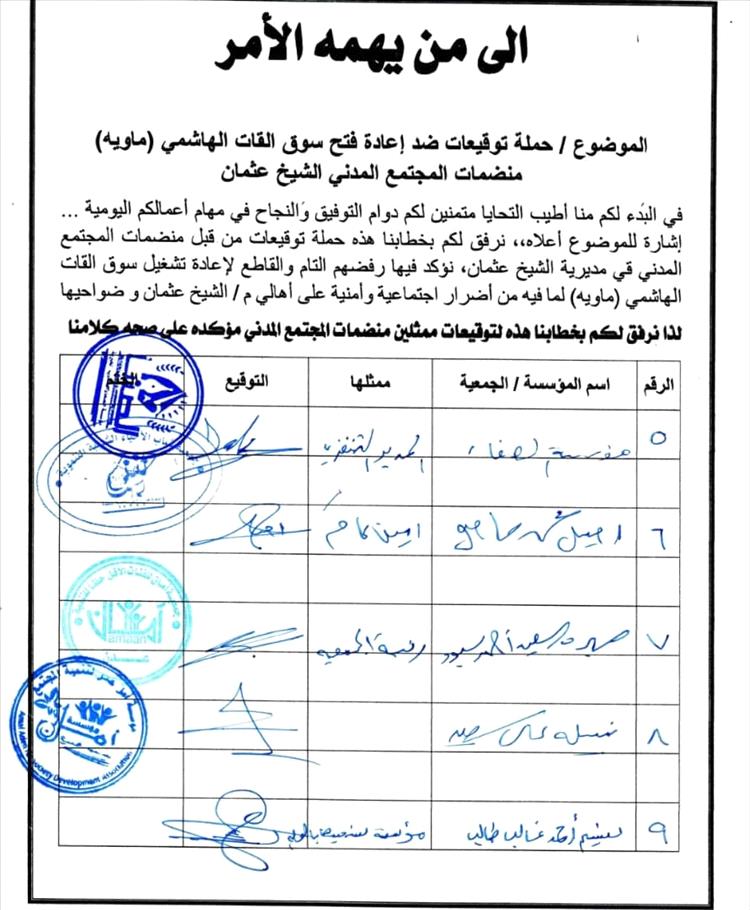 الى من يهمه الأمر
الموضوع / حملة توقيعات ضد إعادة فتح سوق القات الهاشمي (ماويه)
منضمات المجتمع المدني الشيخ عثمان
في البَدء لكم منا أطيب التحايا متمنين لكم دوام التوفيق وَالنجاح في مهام أعمالكم اليومية ...
إشارة للموضوع أعلاه،، نرفق لكم بخطابنا هذه حملة توقيعات من قبل منضمات المجتمع
المدني قي مديرية الشيخ عثمان، نؤكد فيها رفضهم التام والقاطع لإعادة تشغيل سوق القات
الهاشمي (ماويه) لما فيه من أضرار اجتماعية وأمنية على أهالي م / الشيخ عثمان و ضواحيها
لذا نرفق لكم بخطابنا هذه لتوقيعات ممثلين منضمات المجتمع المدني مؤكده على صحه كلامنا
الرقم اسم المؤسسة / الجمعية ممثلها التوقيع الختم
٥ مؤسسة الصفاء المدير التنفيذي
٦
٧ رئيسة الجمعيه
amaan
عدن
٨
مؤسسة
Society Development Association
٩ أحمد غالب طالب مؤسسة